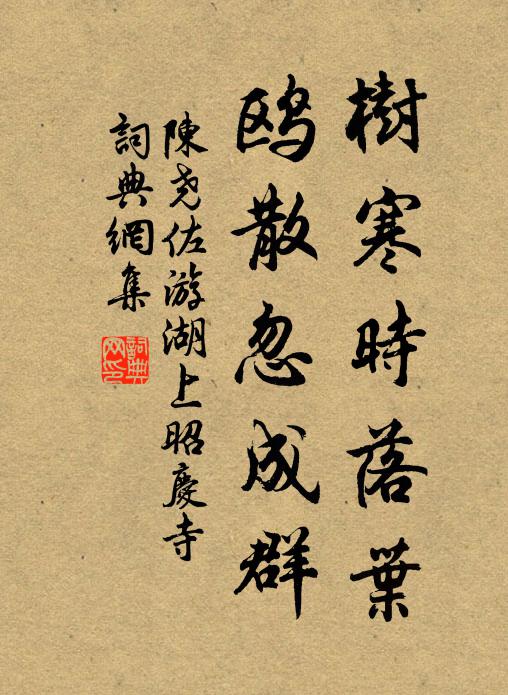 樹寒時落葉
鸥散忽成群
陳尧佐游湖上昭慶寺
詞典網集
詞典网印